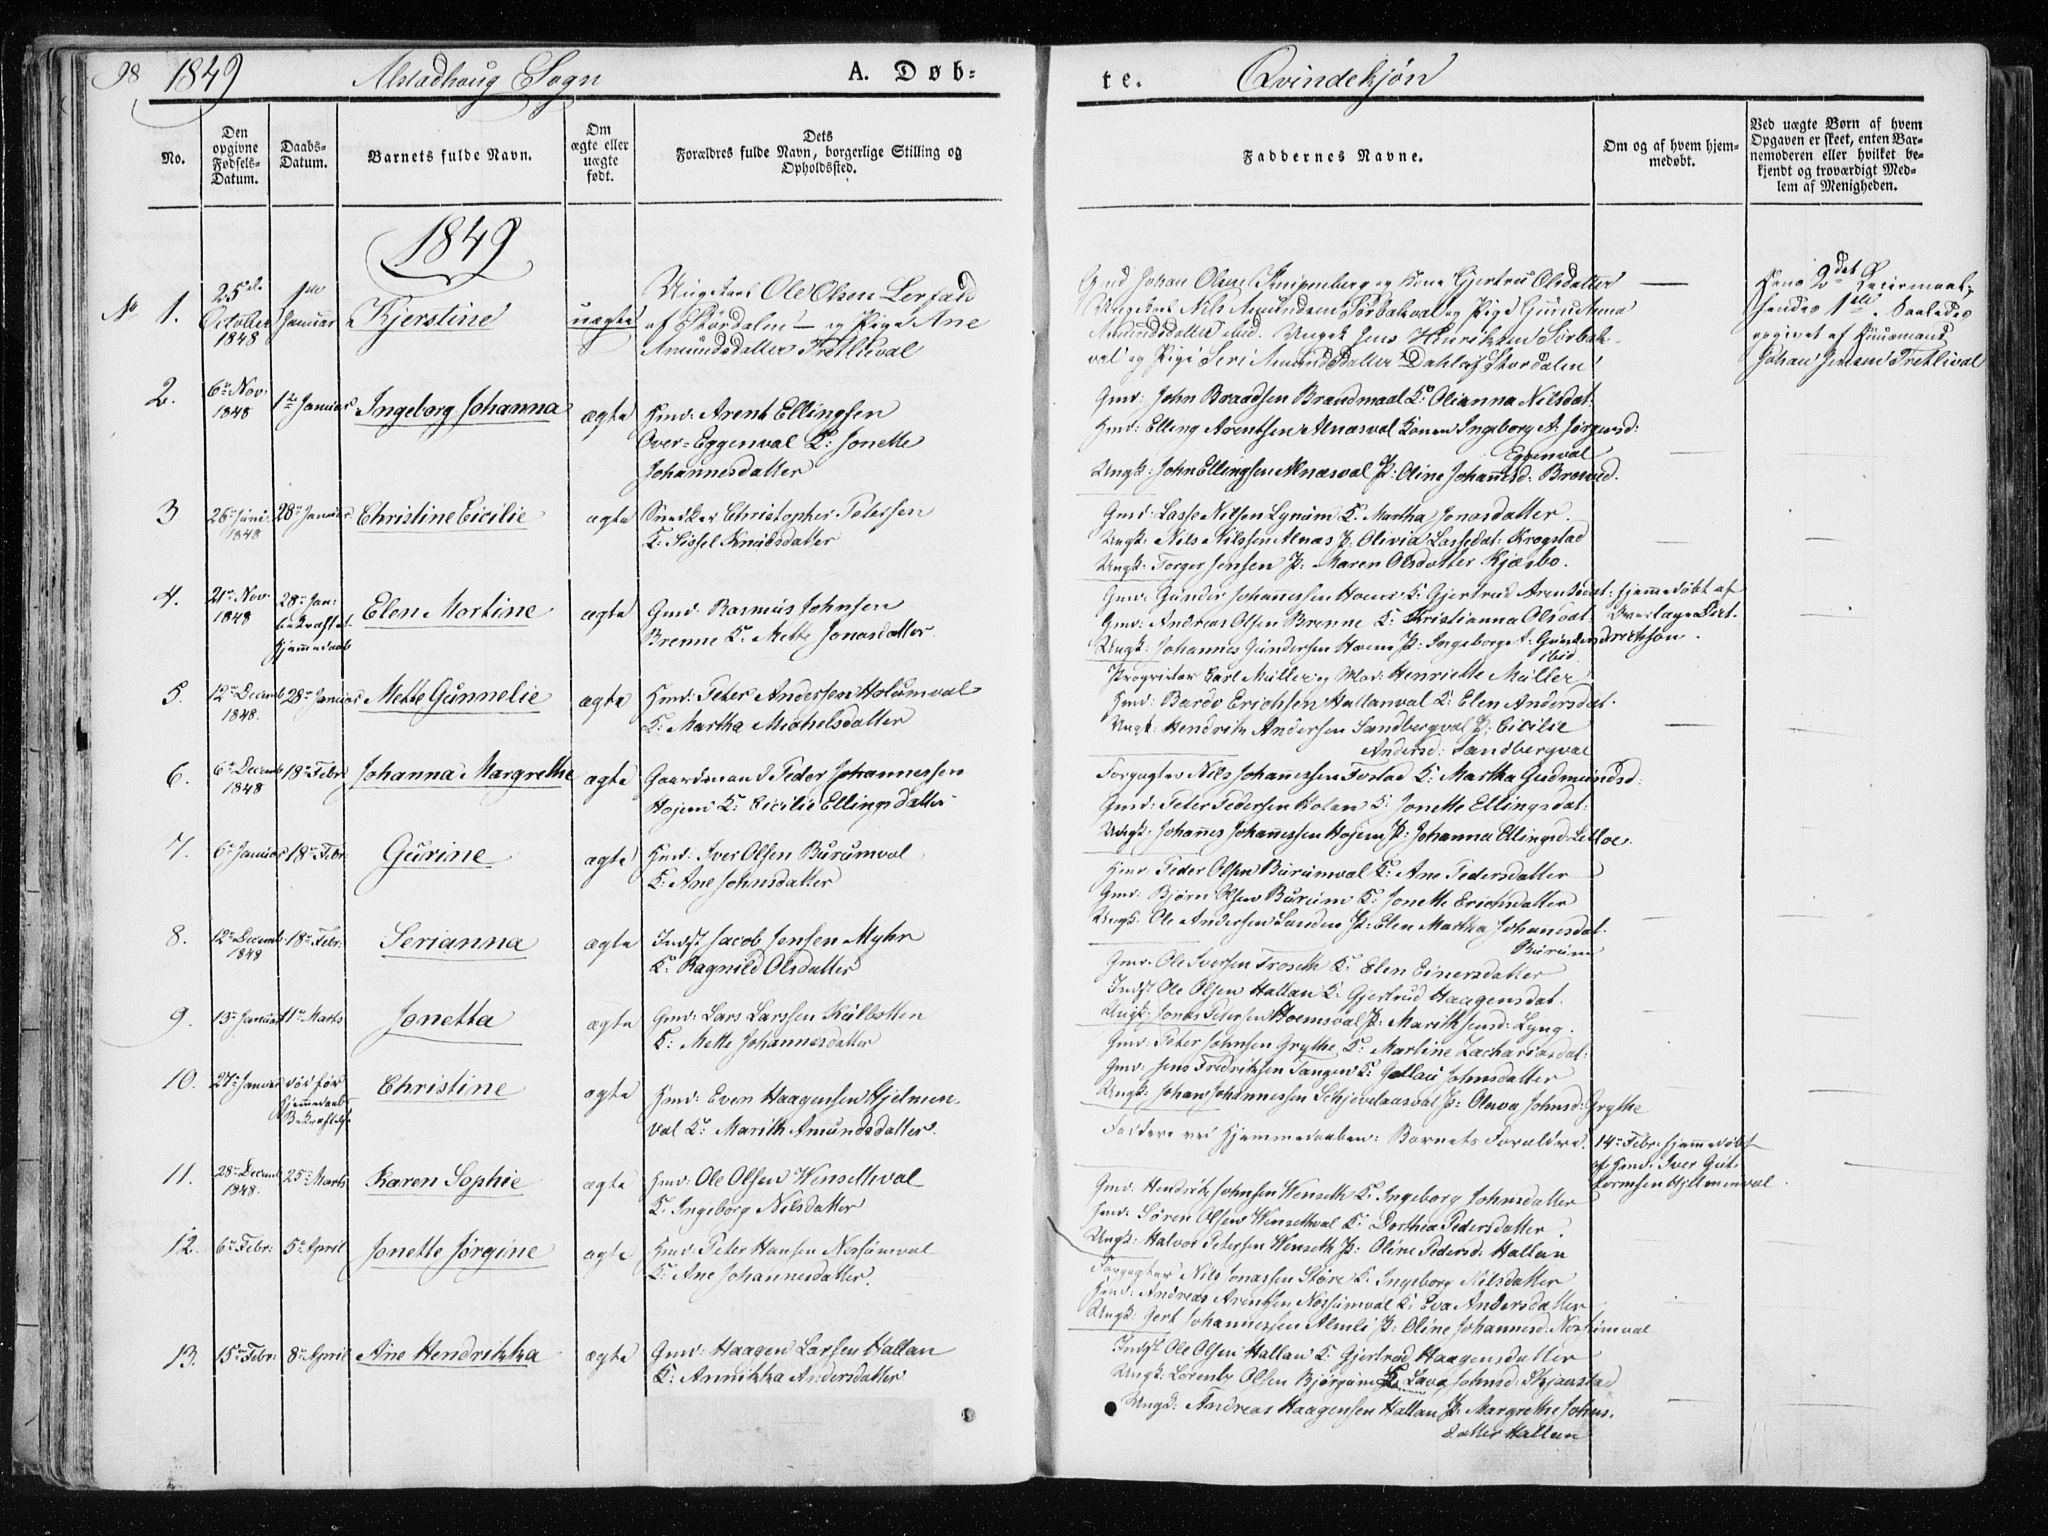 98 1849 Alstadhoug Sogn A. Døb-
te. Qvindekjøn
No.
Den opgivne Fødsels-Datum.
Daabs-Datum.
Barnets fulde Navn.
Om ægte eller uægte født.
Dets Forældres fulde Navn, borgerlige Stilling og Opholdssted.
Faddernes Navne.
Om og af hvem hjem-medøbt.
Ved uægte Børn af hvem Opgaven er skeet, enten Bar-nemoderen eller hvilket be-kjendt og troværdigt Med-lem af Menigheden.
1849
No 1.
25de October 1848
1ste Januar
Kjerstine
uægte
Ungkarl Ole Olsen Lerfald
af Størdalen — og Pige Ane
Amundsdatter Tretlival
Johan Olsen og Kone Gjertru Olsdatter
Ungkarl Nils Amundsen Sørbakval og Pige
Amundsdatter ibid. Ungk. Jens Henriksen Sørbak-
val og Pige Seri Amundsdatter Dahl af Størdalen
Hans 2det Leiermaal,
hendes 1ste. Saaledes
opgivet af Huusmand
Johan Jensen Tretlival
2.
6te Nov. 1848
1te Januar
Ingeborg Johanna
ægte
Hmd: Arent Ellingsen
Over-Eggenval K: Jonette
Johannesdatter
Gmd: John Braadsen Brandmaal K: Olianna Nilsdat:
Hmd: Elling Arentsen Alnæsval Konen Ingeborg A: Jørgensd:
Eggenval
Ungk: John Ellingsen Alnæsval P: Oline Johannesd:
3
26de Juni 1848
28de Januar
Christine Cicilie
ægte
Snedker Christopher Petersen
K: Sissel Knudsdatter
Gmd: Lasse Nilsen Lynum K: Martha Jonasdatter.
Ungk: Nils Nilssen Alnæs P: Olivia Lassesdat: Krogstad
Ungk: Torger Jensen P: Maren Olsdatter Kjæsbo.
4.
21de Nov. 1848
28de Jan: bekræftet Hjemmedaab
Elen Martine
ægte
Gmd: Rasmus Johnsen
Brenne K: Mette Jonasdatter.
Gmd: Gunder Johannessen Hoem K: Gjertrud Arentsdat:
Gmd: Andreas Olsen Brenne K: Christianna Olsdat
Ungk: Johannes Gundersen Hoem P: Ingeborg A: Gundersd
ibid.
Hjemmedøbt af
Overlæge Diet-
richson.
5.
12te Decemb 1848.
28de Januar
Mette Gunnelie
ægte
Hmd: Peter Andersen Holumval
K: Martha Michelsdatter
Proprietør Carl Müller og Mad: Henriette Müller
Hmd: Bardo Erichsen Hallanval K: Elen Andersdat.
Ungk: Hendrik Andersen Sandbergval P: Cicilie
Andersd: Sandbergval
6.
6te Decemb 1848
18de Febr
Johanna Margrethe
ægte
Gaardmand Peder Johannessen
Hojem K: Cicilie Ellingsdatter
Forpagter Nils Johannessen Fostad K: Martha Gudmundsd:
Gmd: Peter Pedersen Kolan K: Jonette Ellingsdat:
Ungk: Johannes Johannessen Hojem P: Johanna Ellingsd:
7.
6te Januar
18de Febr:
Gurine
ægte
Hmd: Iver Olsen Burumval
K: Ane Johnsdatter
Hmd: Peder Olsen Burumval K: Ane Pedersdatter
Gmd: Bjørn Olsen Burum K: Jonette Erichsdatter
Ungk: Ole Andersen Sanden P: Elen Martha Johannesdat.
Burum
8.
12te Decemb. 1848
18de Febr:
Serianna
ægte
Indst Jacob Jensen Myhr
K: Ragnild Olsdatter
Gmd: Ole Iversen Troseth K: Elen Einersdatter
Indst Ole Olsen Hallan K: Gjertrud Haagensdat.
Ungk: Jonas Petersen Hoemsval P: Marith Jensd: Lyng.
9.
13de Januar
11te Marts
Jonetta
ægte
Gmd: Lars Larssen Kulbotten
K: Mette Johannesdatter
Gmd: Peter Johnsen Grythe K: Martine Zachariasdat:
Gmd: Jens Fredriksen Tangen K: Johnsdatter
Ungk: Johan Johannessen Skjevelaasval P: Olava Johnsd: Grythe
10.
27de Januar
død før Hjemmedaabs Bekræftelse
Christine
ægte
Hmd: Even Haagensen Hjelmen-
val K: Marith Amundsdatter.
Faddere ved Hjemmedaaben: Barnets Forældre.
14de Febr: hjemmedøbt
af Hmd: Iver Gut-
tormsen Hjelmenval.
11.
28de Decemb 1848.
25de Marts
Karen Sophie
ægte
Hmd: Ole Olsen Wensethval
K: Ingeborg Nilsdatter
Gmd: Hendrik Johnsen Wenseth K: Ingeborg Johnsdatter
Hmd: Søren Olsen Wensethval K: Dorthea Pedersdatter
Ungk: Halvor Petersen Wenseth P: Oline Pedersd: Hallan
12.
6te Febr:
5te April
Jonette Jørgine
ægte
Hmd: Peter Hansen Nossumval
K: Ane Johannesdatter.
Forpagter Nils Jonassen Støre K: Ingeborg Nilsdatter
Hmd: Andreas Arentsen Nossumval K: Eva Andersdatter
Ungk: Gert Johannessen Almli P: Oline Johannesd: Nossumval
13.
15de Febr:
8de April
Ane Hendrikka
ægte
Gmd: Haagen Larsen Hallan
K: Annikka Andersdatter
Indst Ole Olsen Hallan K: Gjertrud Haagensdatter
Ungk: Lorents Olsen Bjørgum Johnsd: Skjerstad
Ungk: Andreas Haagensen Hallan P: Margrethe Johns-
datter Hallan